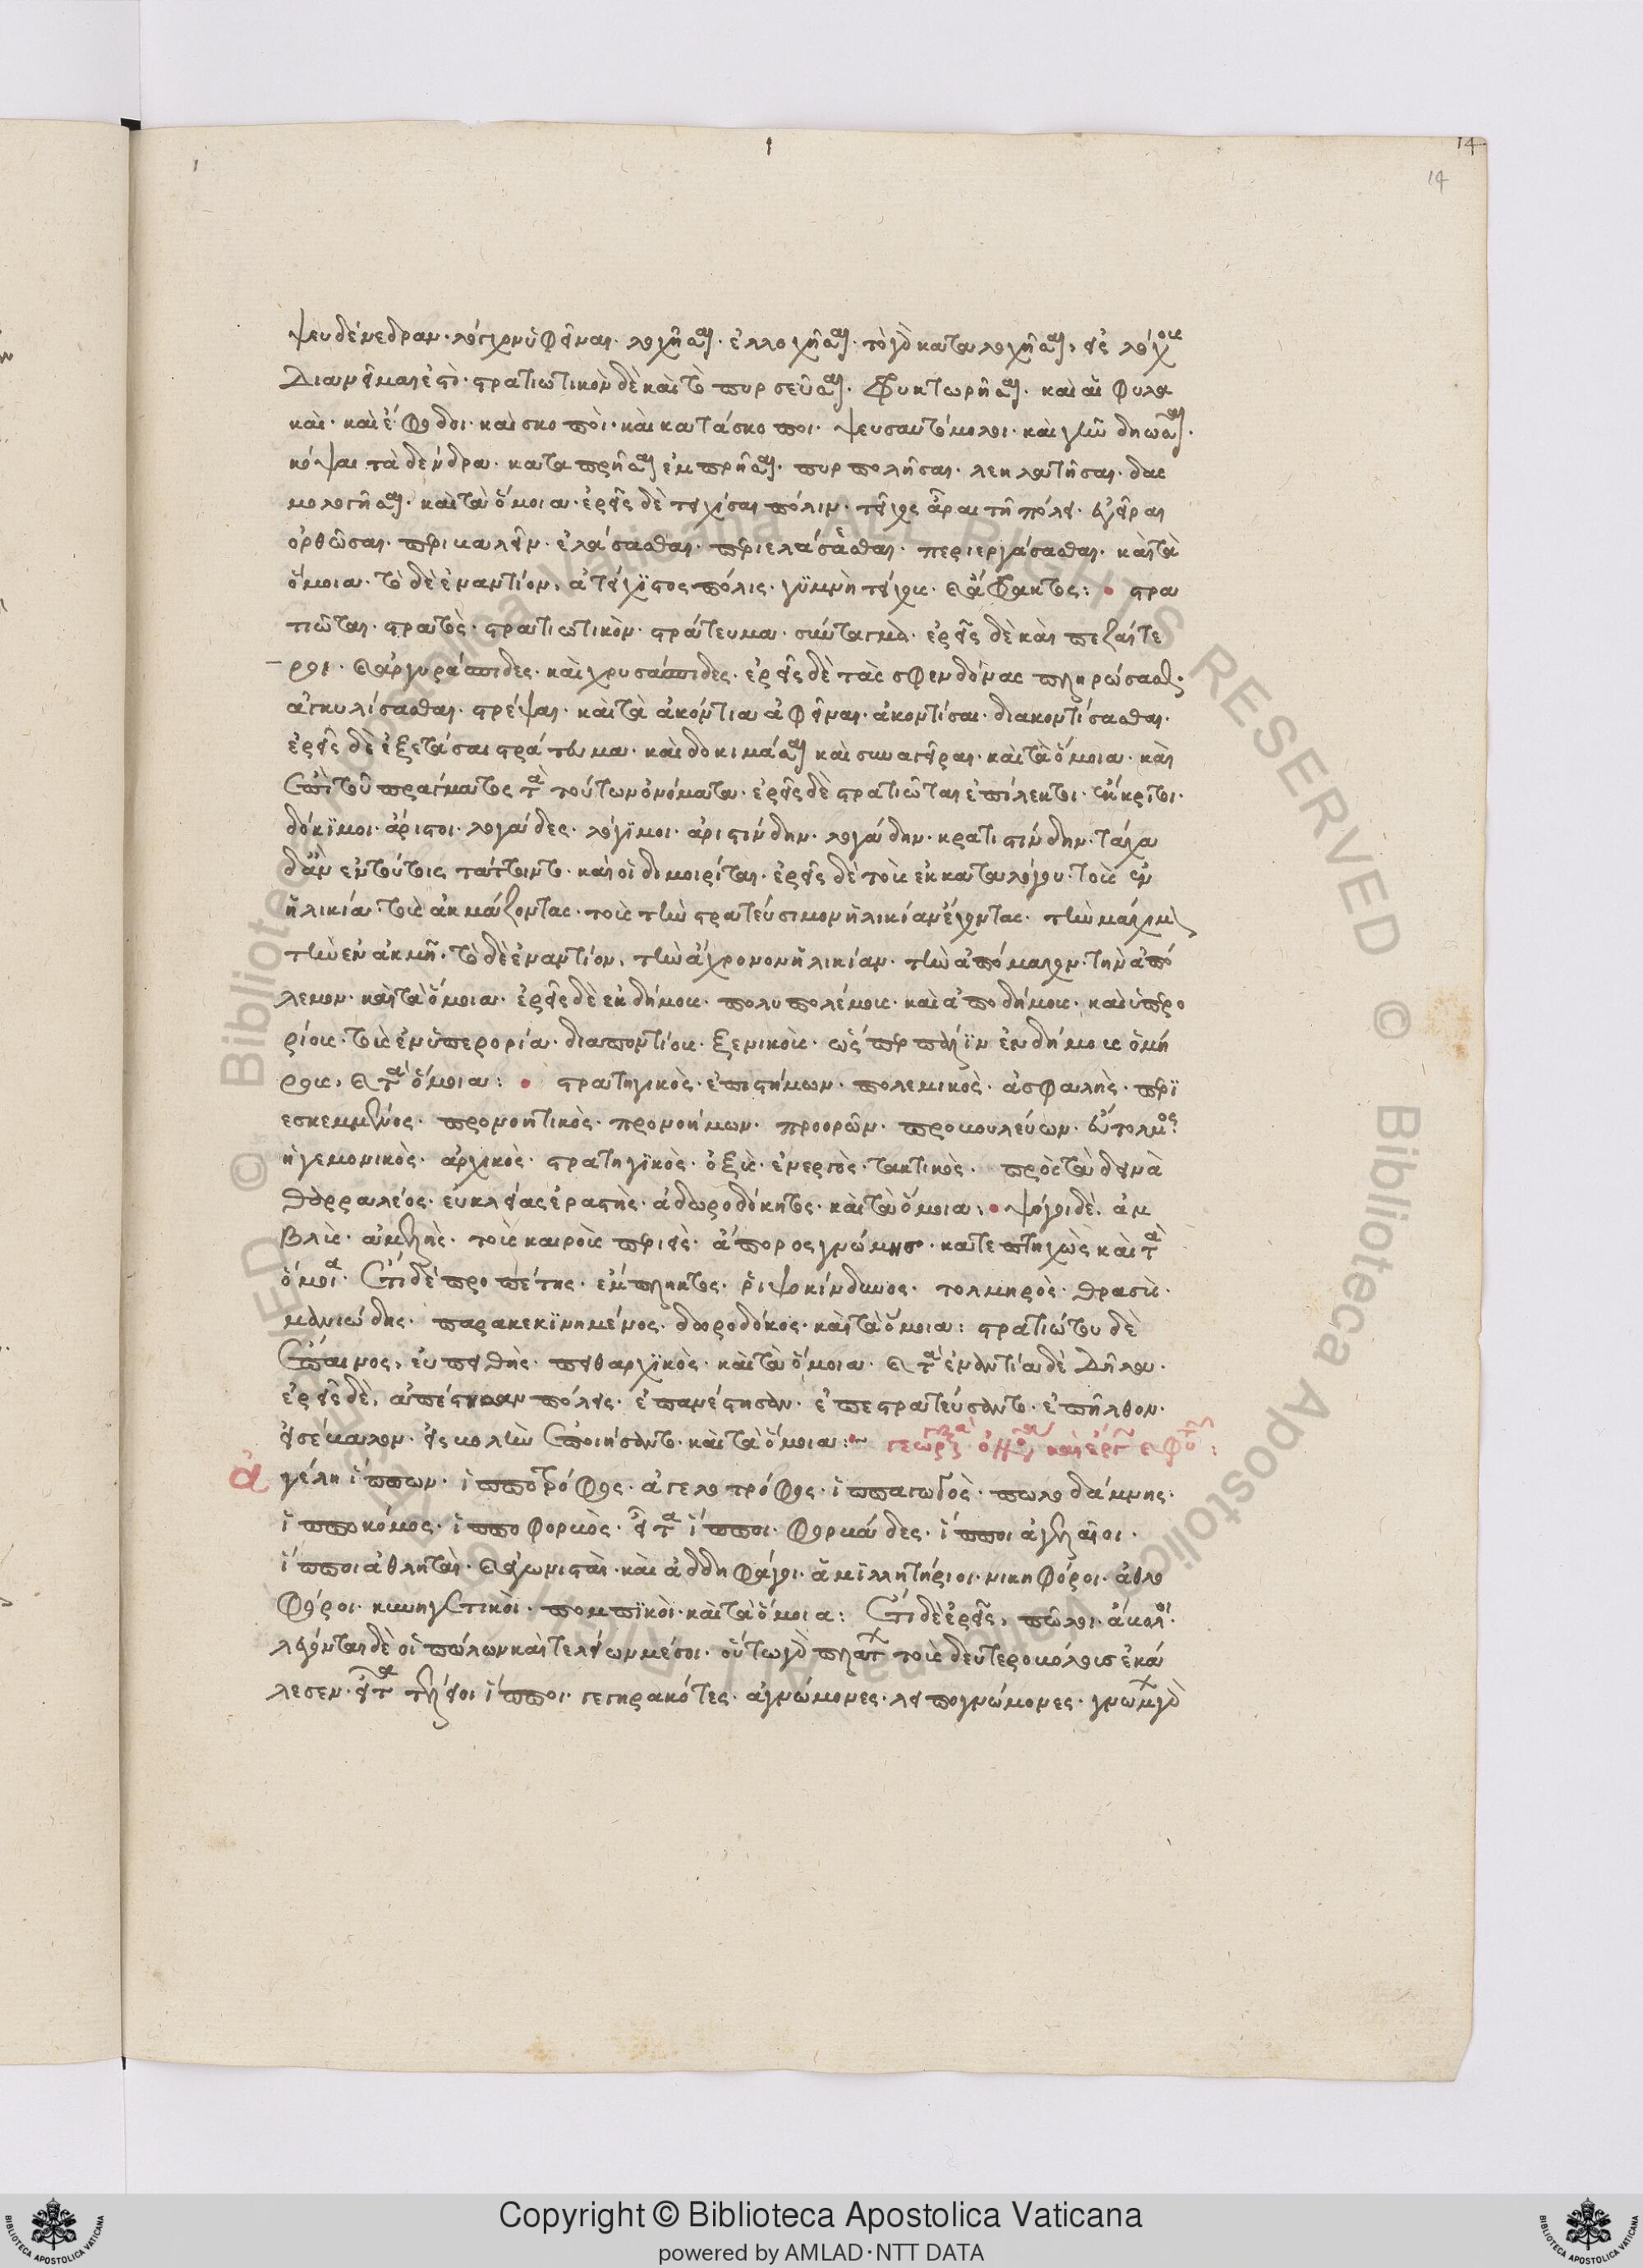 14
14
ψευδενέδραν· λόχον ὑφεῖναι· λοχῆσαι· ἐλλοχῆσαι· τὸ γὰρ καταλοχῆσαι, εἰς λόχους
Διανεῖμαι ἐστὶ· στρατιωτικὸν δὲ καὶ τὸ πυρσεῦσαι· Φρυκτωρῆσαι· καὶ αἱ φυλα
καὶ· καὶ ἔφοδοι· καὶ σκοποὶ· καὶ κατάσκοποι· ψευσαυτόμολοι· καὶ γῆν δηῶσαι·
κόψαι τὰ δένδρα· καταπρῆσαι ἐμπρῆσαι· πυρπολῆσαι· λεηλατῆσαι· δασ
μολογῆσαι· καὶ τὰ ὅμοια· ἐρεῖς δὲ τειχίσαι πόλιν· τεῖχος ἆραι τῇ πόλει· ἐγεῖραι
ὀρθῶσαι· περιβαλεῖν· ἐλάσασθαι· περιελάσασθαι· περιεργάσασθαι· καὶ τὰ
ὅμοια· τὸ δὲ ἐναντίον, ἀτείχιστος πόλις· γυμνὴ τείχους· καὶ ἄφρακτος: στρα
τιῶται· στρατὸς· στρατιωτικὸν· στράτευμα· σύνταγμα· ἐρεῖς δὲ καὶ πεζαίτε
ροι· καὶ ἀργυράσπιδες· καὶ χρυσάσπιδες· ἐρεῖς δὲ τὰς σφενδόνας πληρώσασθαι·
ἀγκυλίσασθαι· στρέψαι· καὶ τὰ ἀκόντια ἀφεῖναι· ἀκοντίσαι· διακοντίσασθαι·
ἐρεῖς δὲ ἐξετάσαι στράτευμα· καὶ δοκιμάσαι καὶ συναγεῖραι· καὶ τὰ ὅμοια· καὶ
ἐπὶ τοῦ πράγματος τὰ τούτων ὀνόματα· ἐρεῖς δὲ στρατιῶται ἐπίλεκτοι· ἔκκριτοι·
δόκιμοι· ἄριστοι· λογάδες· λόγιμοι· ἀριστίνδην· λογάδην· κρατιστίνδην· τάχα
δἂν ἐν τούτοις τάττοιντο· καὶ οἱ διμοιρίται· ἐρεῖς δὲ τοὺς ἐκ καταλόγου· τοὺς ἐν
ἡλικίᾳ· τοὺς ἀκμάζοντας· τοὺς τὴν στρατεύσιμον ἡλικίαν ἔχοντας· τὴν μάχιμον
τὴν ἐν ἀκμῇ· τὸ δὲ ἐναντίον, τὴν ἄχρονον ἡλικίαν· τὴν ἀπόμαχον· τὴν ἀπό
λεμον· καὶ τὰ ὅμοια· ἐρεῖς δὲ ἐκδήμους· πολυπολέμους· καὶ ἀποδήμους· καὶ ὑπερο
ρίους· τοὺς ἐν ὑπερορίᾳ· διαποντίους· ξενικοὺς· ὥσπερ πάλιν ἐνδήμους ὁμό
ρους, καὶ τὰ ὅμοια: στρατηγικὸς· ἐπιστήμων· πολεμικὸς· ἀσφαλὴς· περι
εσκεμμένος· προνοητικὸς· προνοήμων· προορῶν· προβουλεύων· εὔτολμος·
ἡγεμονικὸς· ἀρχικὸς· στρατηγικὸς· ὀξὺς· ἐνεργὸς· τακτικὸς· πρὸς τὰ δεινὰ
θαρραλέος· εὐκλείας ἐραστὴς· ἀδωροδόκητος· καὶ τὰ ὅμοια: ψόγοι δὲ, ἀμ
βλὺς· ἀμελὴς· τοὺς καιροὺς προιεὶς· ἄπορος γνώμης· κατεπτηχὼς καὶ τὰ
ὅμοια· ἔτι δὲ προπέτης· ἔμπληκτος· ῥιψοκίνδυνος· τολμηρὸς· θρασὺς·
μανιώδης· παρακεκινημένος· δωροδόκος· καὶ τὰ ὅμοια: στρατιώτου δὲ
ἔπαινος, εὐπειθὴς· πειθαρχικὸς· καὶ τὰ ὅμοια· καὶ τὰ ἐναντία δὲ Δῆλον·
ἐρεῖς δὲ, ἀπέστησαν πόλεις· ἐπανέστησαν· ἐπεστρατεύσαντο· ἐπῆλθον·
εἰσέβαλον· εἰσβολὴν ἐποιήσαντο· καὶ τὰ ὅμοια:
ἀγέλη ἵππων· ἱπποτρόφος· ἀγελοτρόφος· ἱππαγωγὸς· πωλοδάμνης·
ἱπποκόμος· ἱπποφορβὸς· εἶτα ἵπποι· φορβάδες· ἵπποι ἀγελαῖοι·
ἵπποι ἀθληταὶ· καὶ ἀγωνισταὶ· καὶ ἀδδηφάγοι· ἁμιλλητήριοι· νικηφόροι· ἀθλο
φόροι· κυνηγετικοὶ· πομπικοὶ· καὶ τὰ ὅμοια: ἔτι δὲ ἐρεῖς, πῶλοι· ἄβολοι·
λέγονται δὲ οἱ πώλων καὶ τελείων μέσοι· οὕτω γὰρ πλάτων τοὺς δευτεροβόλους ἐκά
λεσεν· εἶτα τέλειοι ἵπποι· γεγηρακότες· ἀγνώμονες· λειπογνώμονες· γνώμων γὰρ
Copyright © Biblioteca Apostolica Vaticana
powered by AMLAD·NTT DATA